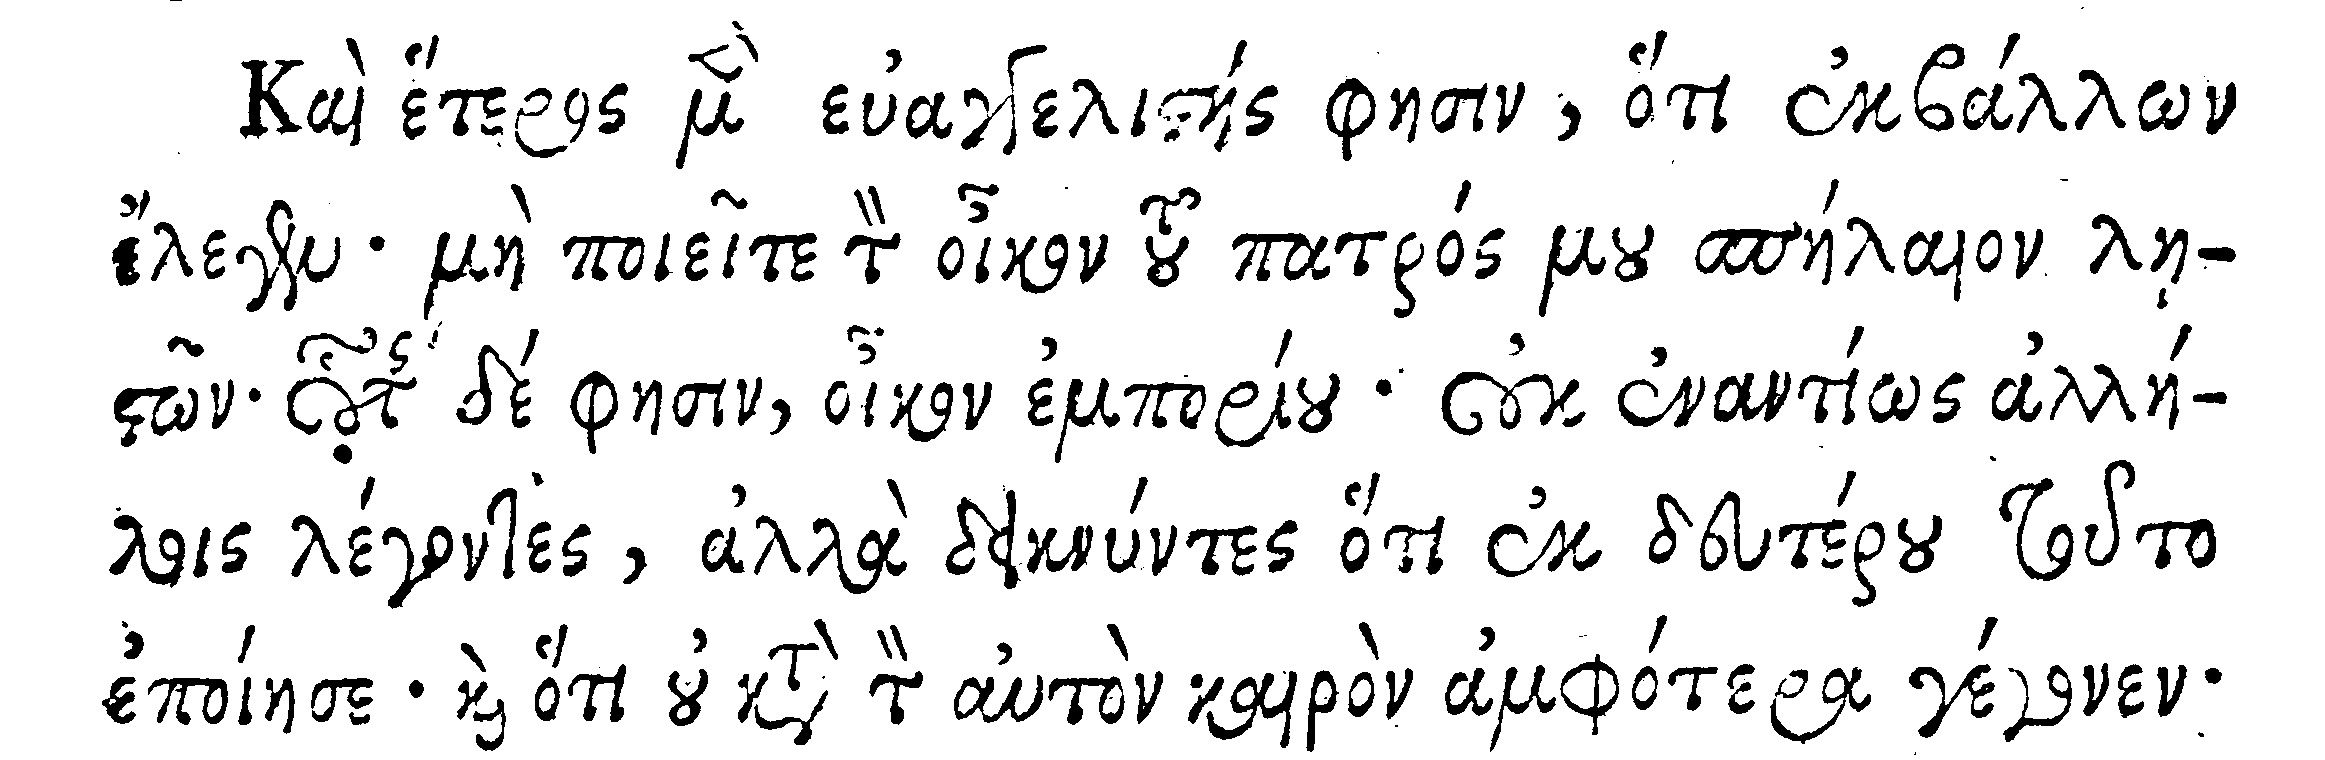 Καὶ ἕτερος μὲν εὐαγγελιστής φησιν, ὅτι ἐκβάλλων
ἔλεγεν· μὴ ποιεῖτε τὸν οἶκον τοῦ πατρός μου σπήλαιον λη-
στῶν. οὗτος δέ φησιν, οἶκον ἐμπορίου· οὐκ ἐναντίως ἀλλή-
λοις λέγοντες, ἀλλὰ δεικνύντες ὅτι ἐκ δευτέρου τοῦτο
ἐποίησε· καὶ ὅτι οὐ κατὰ τὸν αὐτὸν καιρὸν ἀμφότερα γέγονεν·